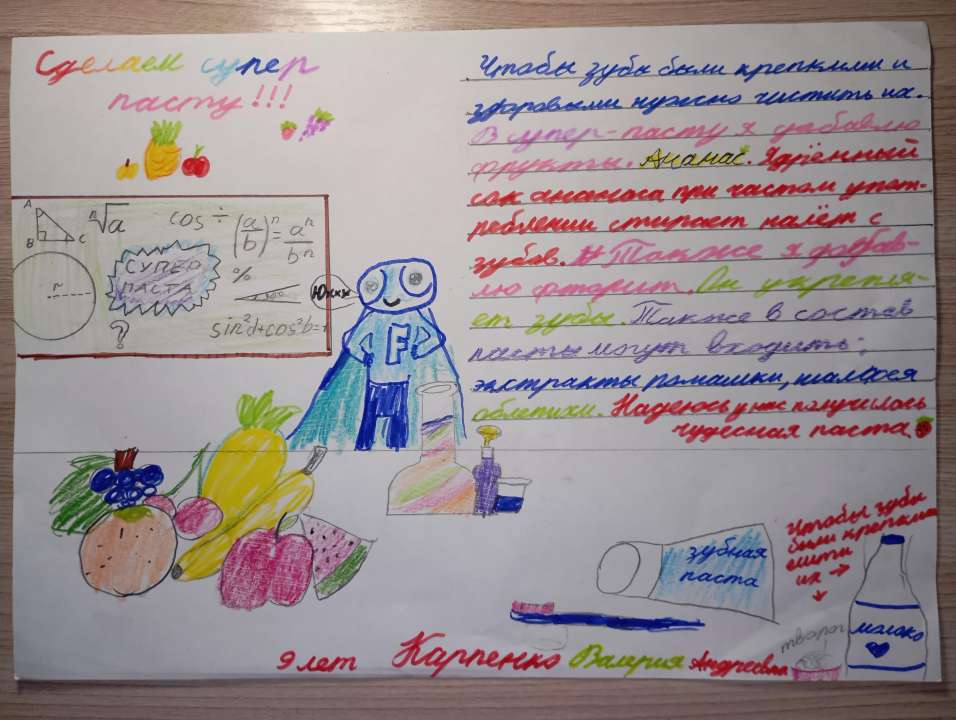 Сделаем супер
пасту!!!
Чтобы зубы были крепкими и
здоровыми нужно чистить их.
В супер-пасту я добавлю
фрукты. Ананас. Ядрённый
сок ананаса при частом упот-
реблении стирает налёт с
зубов. Также я добав-
лю фторит. Он укрепля-
ет зубы. Также в состав
пасты могут входить:
экстракты ромашки, шалфея
облепихи. Надеюсь у нас получилась
чудесная паста
A
B C
ⁿ√a
cos ÷
(a/b)ⁿ = aⁿ/bⁿ
r
СУПЕР
ПАСТА
?
%
sin²d+cos²b=1
F
зубная
паста
Чтобы зубы
были крепкими
их
творог
молоко
9 лет Карпенко Валерия Андреевна